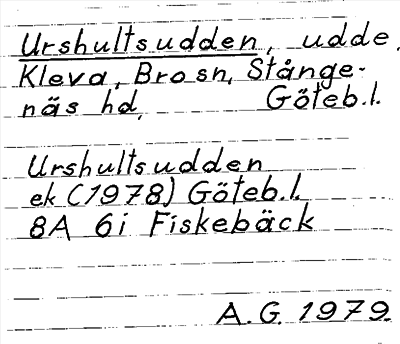 Urshultsudden, udde,
Kleva, Brosn, Stånge-
näs hd, Göteb.l.
Urshultsudden
ek (1978) Göteb.l.
8A 6i Fiskebäck
A.G. 1979.